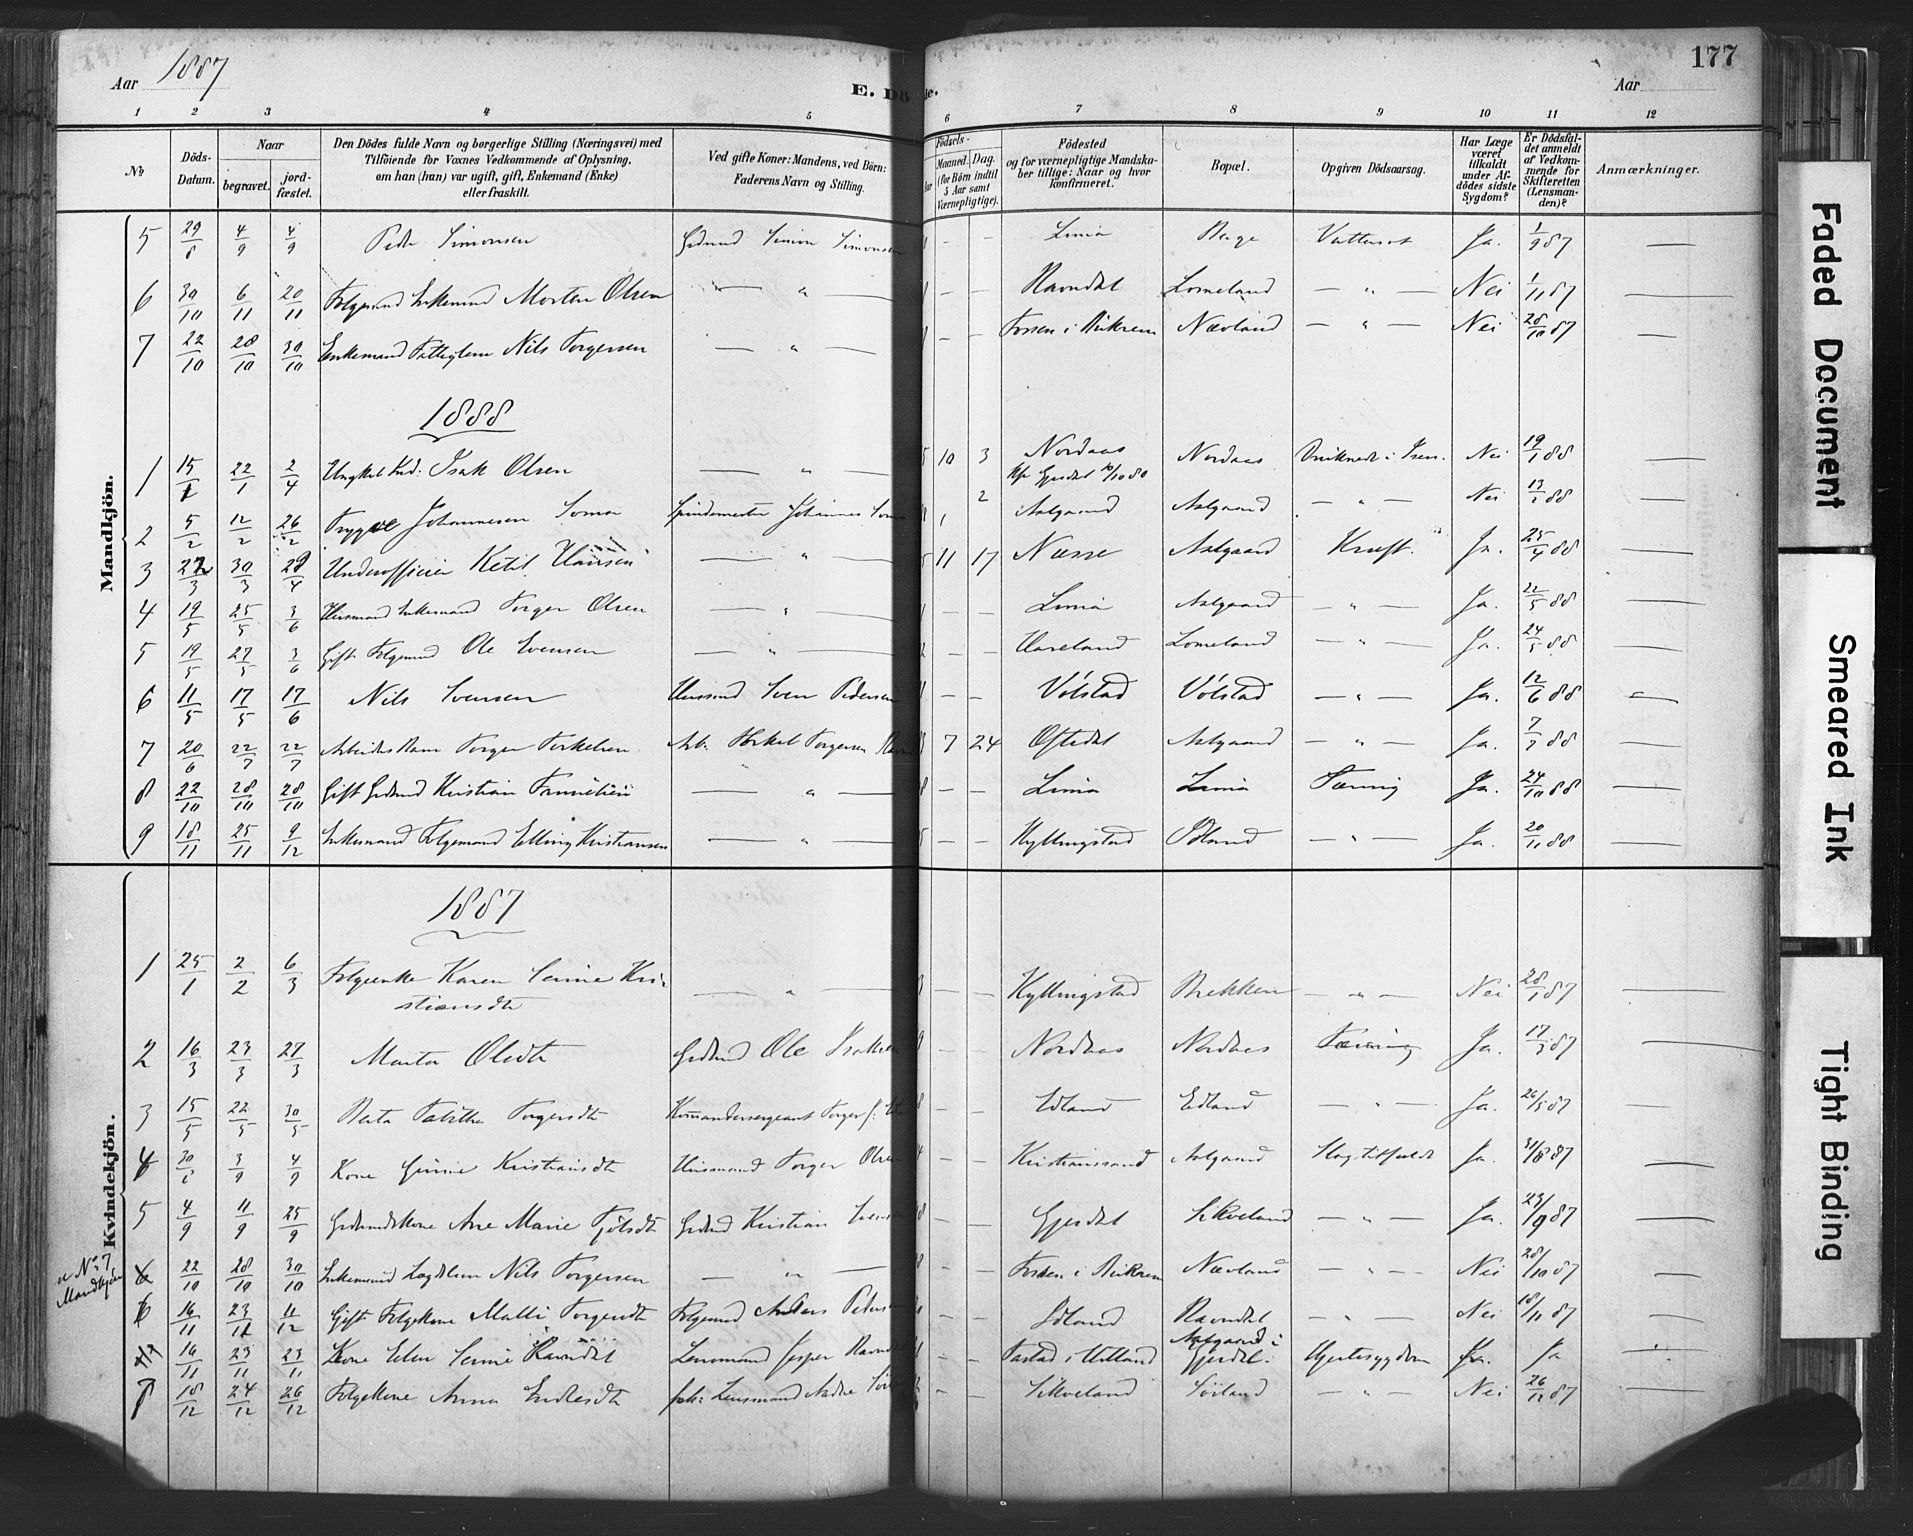 Aar 1887
E. Dö
de.
Aar
177
1 2 3 4 5 6 7 8 9 10 11 12
№
Döds-
Datum.
Naar
begravet.
jord-
fæstet.
Den Dödes fulde Navn og borgerlige Stilling (Næringsvei) med
Tilföiende for Voxnes Vedkommende af Oplysning,
om han (hun) var ugift, gift, Enkemand (Enke)
eller fraskilt.
Ved gifte Koner: Mandens, ved Börn:
Faderens Navn og Stilling.
Födsels-
Maaned. Dag.
(for Börn indtil
5 Aar samt
Værnepligtige).
Födested
og for værnepligtige Mandska-
ber tillige: Naar og hvor
konfirmeret.
Bopæl.
Opgiven Dödsaarsag.
Har Læge
været
tilkaldt
under Af-
dödes sidste
Sygdom?
Er Dödsfal-
det anmeldt
af Vedkom-
mende for
Skifteretten
(Lensman-
den)?
Anmærkninger.
Mandkjön.
5 29/8 4/9 4/9 Peder Simonsen Gdmd Simon Simonsen — — Limia Berge Vattersot Ja. 1/9 87 —
6 30/10 6/11 20/11 Folgemand Enkemand Morten Olsen — " — — Ravndal Lomeland — " — Nei 1/11 87 —
7 22/10 28/10 30/10 Enkemand Fattiglem Nils Torgersen — " — — Fossen i Bikrem Nævland — " — Nei 28/10 87 —
1888
1 15/1 22/1 2/4 Ungkal Isak Olsen — " — 5 10 3 Nordaas Nordaas Druknet i Nei 19/1 88
Kf. Gjesdal /10 80
2 5/2 12/2 26/2 Trygve Johannesen Soma Spindemester Johannes Soma 1 2 Aalgaard Aalgaard — " — Nei 13/2 88 —
3 22/3 30/3 28/4 Underofficier Ketil Hansen — " — 5 11 17 Næsse Aalgaard Kræft. Ja. 25/4 88 —
4 19/5 25/5 3/6 Huusmand Enkemand Torger Olsen — " — — — Limia Aalgaard " — Ja. 22/5 88 —
5 19/5 27/5 3/6 Gift Folgemand Ole Svensen — " — 2 — — Haveland Lomeland — " — Ja. 24/5 88 —
6 11/5 17/5 17/6 Nils Svensen Huusmd Sven Pedersen — — Vølstad Vølstad — " — Ja. 12/6 88 —
7 20/6 22/7 22/7 Torger Torkelsen Arb. Torkel Torgersen 7 24 Oftedal Aalgaard — " — Ja. 7/7 88 —
8 22/10 28/10 28/10 Gift Gdmd Kristian 8 — — Limia Limia Tæring Ja. 24/10 88 —
9 18/11 25/11 9/12 Enkemand Folgemand Elling Kristiansen — " — 5 — — Kyllingstad Edland — " — Ja. 20/11 88 —
Kvindekjön.
1887
1 25/1 2/2 6/3 Folgeenke Karen Serine Kri-
stiansdt — " — — — Kyllingstad Brekken — " — Nei 28/1 87 —
2 16/3 23/3 27/3 Marta Olsdt Gdmd Ole Isaksen 9 — — Nordaas Nordaas Tæring Ja. 17/3 87 —
3 15/5 22/5 30/5 Berta Tabitha Torgersdt Kommandersergeant Torger 8 — — Edland Edland — " — Ja. 26/5 87 —
4 30/8 3/9 4/9 Kone Gunie Kristiansdt Huusmand Torger Olsen 4 — — Kristianssand Aalgaard Slagtilfælde Ja. 31/8 87 —
5 4/9 11/9 25/9 Gdmandskone Ane Marie Gdmd Kristian Svensen 8 — — Gjesdal Sikveland — " — Ja. 23/9 87 —
№ 7
Mandkjøn
6 22/10 28/10 30/10 Enkemand Lægdslem Nils Torgersen — " — — Fossen i Bikrem Nævland — " — Nei 28/10 87 —
6 16/11 23/11 4/12 Gift Folgekone Malli Torgersdt Folgemd Anders Pedersen — — Edland Ravndal — " — Nei 18/11 87 —
7 16/11 23/11 23/11 Kone Elen Serine Ravndal Lensmand Jesper Ravndal — — Tastad i Hetland Aalgaard i
Gjesdal. Hjertesygdom Ja. Ja
8 18/12 24/12 26/12 Folgekone Anna Endresdt Lensmand Andre — — Sikveland Sørland — " — Nei 26/12 87 —
Faded Document
Smeared Ink
Tight Binding